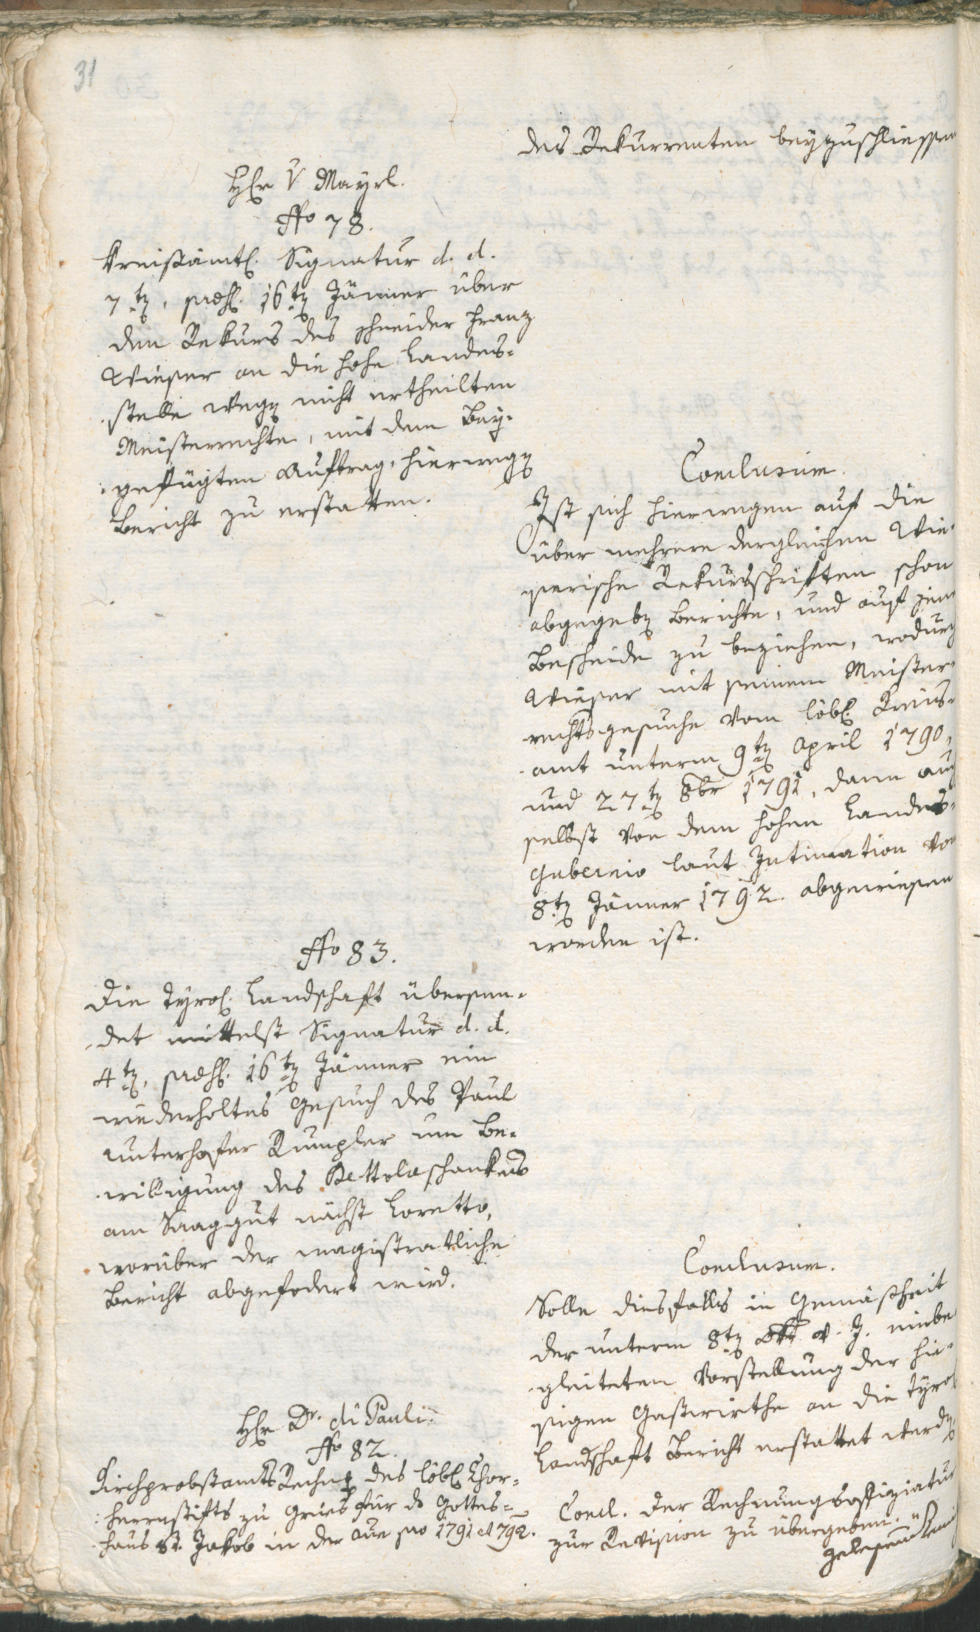 31
des Rekurrenten beyzuschliessen
Hr v Mayrl.
No 78.
Kreisämtl. Signatur d. d.
7ten, praes. 16ten Jänner über
den Rekurs des Schneider Franz
Wieser an die hohe Landes-
stelle wegen nicht ertheilten
Meisterrechte, mit dem bey-
gefügten Auftrag, hierwegen
Bericht zu erstatten.
Conclusum.
Ist sich hierwegen auf die
über mehrere dergleichen Wie-
serische Rekursschriften schon
abgegebenen Berichte, und auf jene
Bescheide zu beziehen, wodurch
Wieser mit seinem Meister-
rechtsgesuche vom löbl. Kreis-
amt unterm 9ten April 1790,
und 27ten 8br 1791, dann auch
selbst von dem hohen Landes-
gubernio laut Intimation vom
8ten Jänner 1792 abgewiesen
worden ist.
No 83.
Die Tyrol. Landschaft übersen-
det mittelst Signatur d. d.
4ten, praes. 16ten Jänner ein
wiederholtes Gesuch des Paul
Unterhofer Rumpler um Be-
willigung des Bettolaschankes
am Saaggut nächst Loretto,
worüber der magistratliche
Bericht abgefodert wird.
Conclusum.
Solle diesfalls in Gemäßheit
der unterm 8ten v. J. einbe-
gleiteten Vorstellung der hie-
sigen Gastwirthe an die Tyrol.
Landschaft Bericht erstattet werden.
Hr Dr. di Pauli.
No 82.
Kirchprobstamts Rechnung des löbl. Chor-
herrnstifts zu Gries für das Gottes-
haus St. Jakob in der Aue pro 1791 et 792.
Concl. Der Rechnungsoffiziatur
zur Revision zu übergeben.